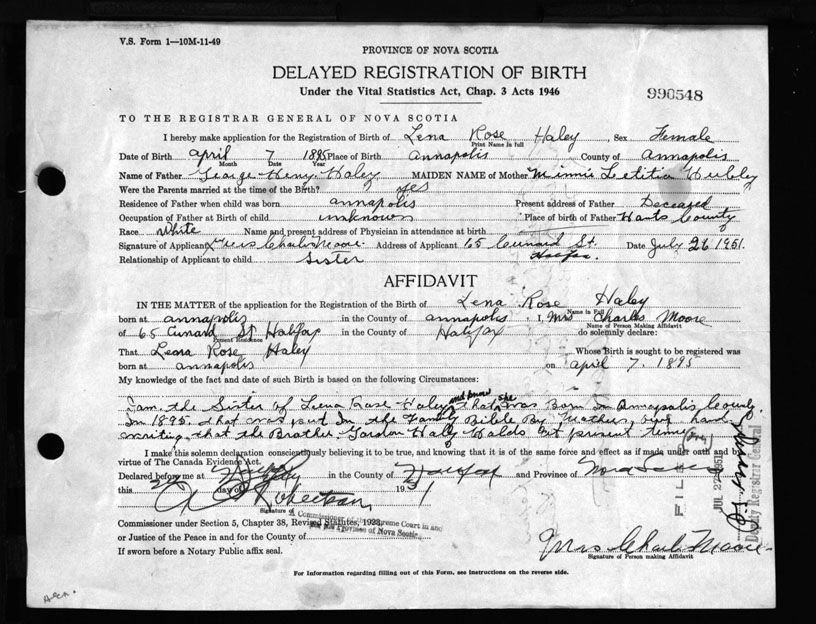 V.S. Form 1—10M-11-49
PROVINCE OF NOVA SCOTIA
DELAYED REGISTRATION OF BIRTH
Under the Vital Statistics Act, Chap. 3 Acts 1946
990548
TO THE REGISTRAR GENERAL OF NOVA SCOTIA
I hereby make application for the Registration of Birth of Lena Rose Haley Sex Female
Print Name in full
Date of Birth April 7 1895 Place of Birth Annapolis County of Annapolis
Month Date Year
Name of Father George Henry Haley MAIDEN NAME of Mother Minnie Letitia
Were the Parents married at the time of Birth? yes
Residence of Father when child was born annapolis Present address of Father Deceased
Occupation of Father at Birth of child unknown Place of birth of Father Hants County
Race White Name and present address of Physician in attendance at birth
Signature of Applicant Mrs Charles Moore Address of Applicant 65 Cunard St. Halifax. Date July 26 1951.
Relationship of Applicant to child Sister
AFFIDAVIT
IN THE MATTER of the application for the Registration of the Birth of Lena Rose Haley
Name in Full
born at annapolis in the County of annapolis. I, Mrs Charles Moore
Name of Person Making Affidavit
of 65 Cunard St Halifax in the County of Halifax do solemnly declare:
Present Residence
That Leora Rose Haley Whose Birth is sought to be registered was
born at annapolis on april 7. 1895
My knowledge of the fact and date of such Birth is based on the following Circumstances:
I am the Sister of Leena Rose Haley and know that she was Born in Annapolis County
In 1895. that was put In the Family Bible By Mother, own hand
writing, that the Brother, Gordon Haley Holds at present time
I make this solemn declaration conscientiously believing it to be true, and knowing that it is of the same force and effect as if made under oath and by
virtue of The Canada Evidence Act.
Declared before me at Halifax in the County of Halifax and Province of Nova Scotia
this 26 day of July 1951
Robertson
Signature of
A Commissioner of the Supreme Court in and
for the Province of Nova Scotia
Commissioner under Section 5, Chapter 38, Revised Statutes, 1923,
or Justice of the Peace in and for the County of
If sworn before a Notary Public affix seal.
Mrs Charles Moore
Signature of Person making Affidavit
FILED
JUL 27 1951
Deputy Registrar General
For Information regarding filling out of this Form, see Instructions on the reverse side.